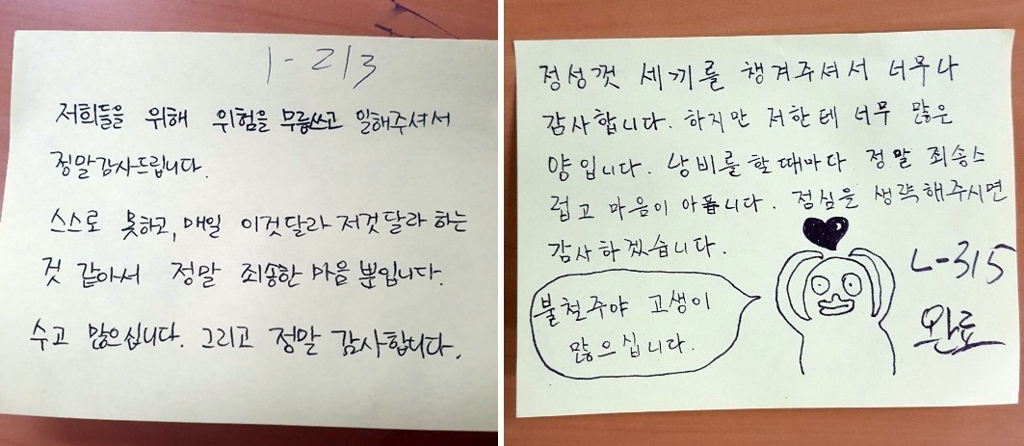 1-213
저희들을 위해 위험을 무릅쓰고 일해주셔서
정말감사드립니다.
스스로 못하고, 매일 이것달라 저것달라 하는
것 같아서 정말 죄송한 마음 뿐입니다.
수고 많으십니다. 그리고 정말 감사합니다.
정성껏 세끼를 챙겨주셔서 너무나
감사합니다. 하지만 저한테 너무 많은
양입니다. 낭비를 할때마다 정말 죄송스
럽고 마음이 아픕니다. 점심을 생략해주시면
감사하겠습니다.
L-315
완료
불철주야 고생이
많으십니다.